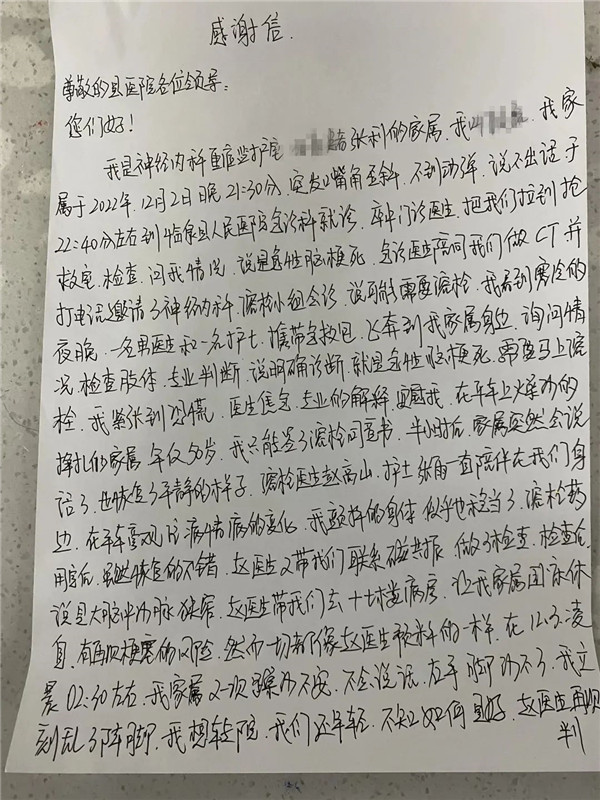 感谢信.
尊敬的县医院各位领导:
您们好!
我是神经内科重症监护室 张利的家属.我 .我家
属于2022年.12月2日晚21:30分.突发口嘴角歪斜.不能动弹.说不出话于
22:40分左右到临泉县人民医院急诊科就诊.卒中门诊医生.把我们拉到抢
救室.检查.问我情况.说是急性脑梗死.急诊医生陪同我们做CT并
打电话邀请了神经内科.溶栓小组会诊.说可能需要溶栓.我看到寒冷的
夜晚.一名男医生和一名护士.携带急救包.飞奔到我家属身边.询问情
况.检查肢体.专业判断.说明确诊断.就是急性脑梗死.需要马上溶
栓.我紧张到恐慌.医生焦急.专业的解释. 我.在平车上躁动的
挣扎的家属.年仅50岁.我只能签了溶栓同意书.半小时后.家属突然会说
话了.也恢复了平静的样子.溶栓医生赵高山.护士张雨一直陪伴在我们身
边.在平车旁观 病情 的变化.我颤抖的身体.似乎也稳当了.溶栓药
用完后.虽然恢复的不错.赵医生又带我们联系磁共振.做了检查.检查后
说是大脑中动脉狭窄.赵医生带我们去十 楼病房.让我家属 床休
息.有再次梗塞的风险.然而一切都像赵医生预料的一样.在12.3凌
晨02:30左右.我家属又一次躁动不安.不会说话.左手脚动不了.我立
刻乱了阵脚.我想转院.我们还年轻.不知如何是好.赵医生再次
判